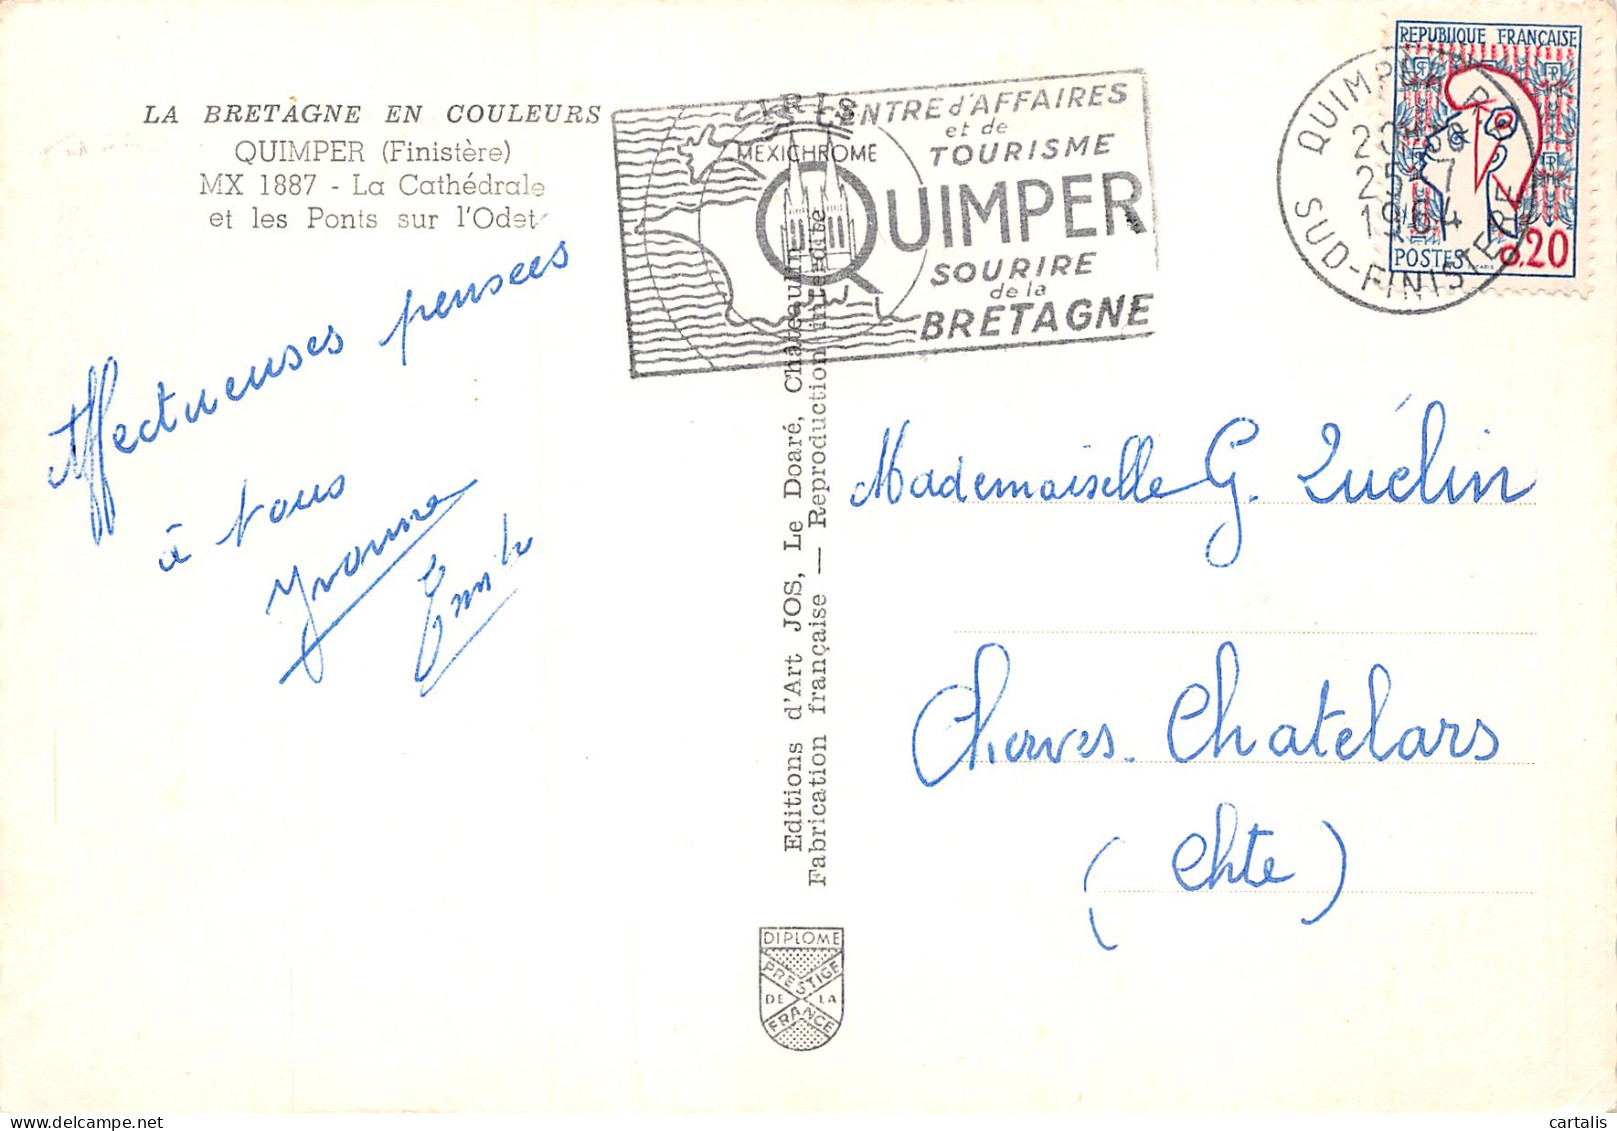 LA BRETAGNE EN COULEURS
QUIMPER (Finistère)
MX 1887 - La Cathédrale
et les Ponts sur l'Odet
Affectueuses pensées
à tous
Yvonne
Emile
IRIS
MEXICHROME
CENTRE d'AFFAIRES
et de
TOURISME
QUIMPER
SOURIRE
de la
BRETAGNE
QUIMPER R.P.
25-7
1964
SUD-FINISTERE
REPUBLIQUE FRANÇAISE
POSTES 0.20
Editions d'Art JOS, Le Doaré, Châteaulin
Fabrication française — Reproduction interdite
Mademoiselle G. Quélin
Cherves. Chatelars
(Chte)
DIPLOME
PRESTIGE
DE LA
FRANCE
cartalis